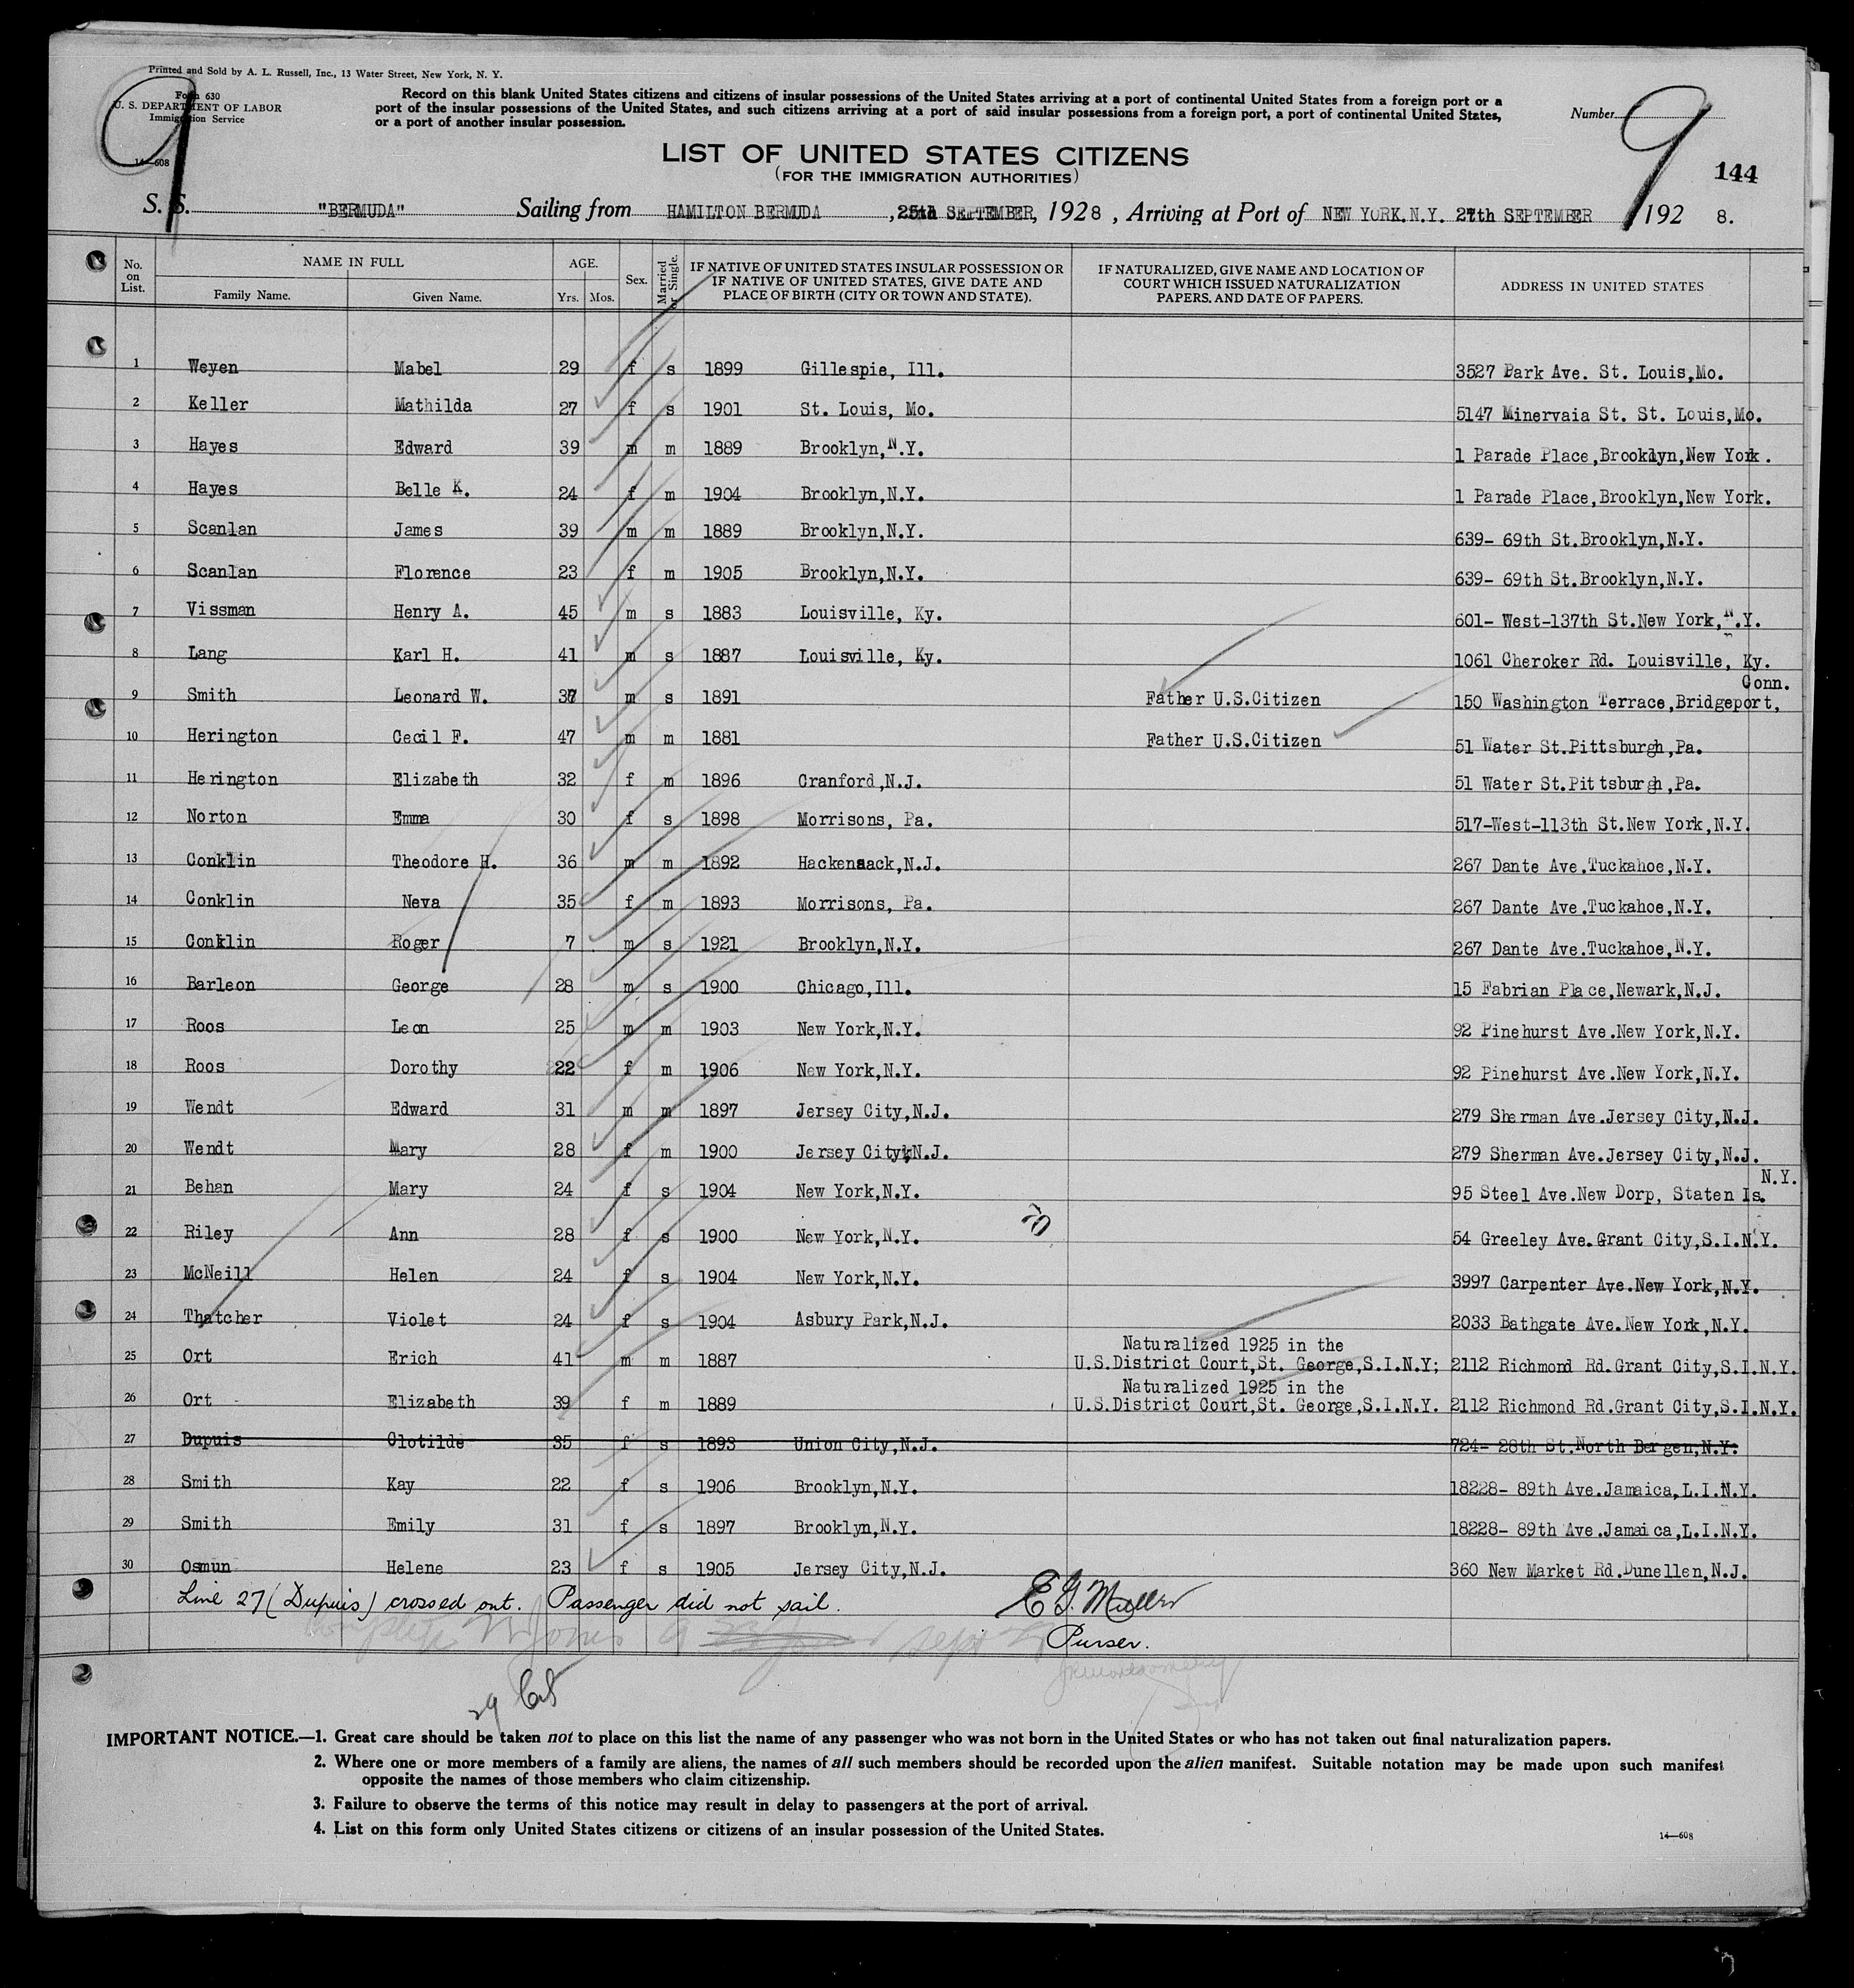 Printed and Sold by A. L. Russell, Inc., 13 Water Street, New York, N. Y.
Form 630
U. S. DEPARTMENT OF LABOR
Immigration Service
14—608
9
Record on this blank United States citizens and citizens of insular possessions of the United States arriving at a port of continental United States from a foreign port or a
port of the insular possessions of the United States, and such citizens arriving at a port of said insular possessions from a foreign port, a port of continental United States,
or a port of another insular possession.
Number 9
144
LIST OF UNITED STATES CITIZENS
(FOR THE IMMIGRATION AUTHORITIES)
S. S. "BERMUDA" Sailing from HAMILTON BERMUDA, 25th SEPTEMBER, 1928, Arriving at Port of NEW YORK.N.Y. 27th SEPTEMBER 192 8.
No. on List. NAME IN FULL Family Name. Given Name. AGE. Yrs. Mos. Sex. Married or Single. IF NATIVE OF UNITED STATES INSULAR POSSESSION OR IF NATIVE OF UNITED STATES, GIVE DATE AND PLACE OF BIRTH (CITY OR TOWN AND STATE). IF NATURALIZED, GIVE NAME AND LOCATION OF COURT WHICH ISSUED NATURALIZATION PAPERS, AND DATE OF PAPERS. ADDRESS IN UNITED STATES
1 Weyen Mabel 29 f s 1899 Gillespie, Ill. 3527 Park Ave. St. Louis,Mo.
2 Keller Mathilda 27 f s 1901 St. Louis, Mo. 5147 Minervaia St. St. Louis,Mo.
3 Hayes Edward 39 m m 1889 Brooklyn,N.Y. 1 Parade Place,Brooklyn,New York.
4 Hayes Belle K. 24 f m 1904 Brooklyn,N.Y. 1 Parade Place,Brooklyn,New York.
5 Scanlan James 39 m m 1889 Brooklyn,N.Y. 639- 69th St.Brooklyn,N.Y.
6 Scanlan Florence 23 f m 1905 Brooklyn,N.Y. 639- 69th St.Brooklyn,N.Y.
7 Vissman Henry A. 45 m s 1883 Louisville, Ky. 601- West-137th St.New York,N.Y.
8 Lang Karl H. 41 m s 1887 Louisville, Ky. 1061 Cheroker Rd. Louisville, Ky.
9 Smith Leonard W. 37 m s 1891 Father U.S.Citizen 150 Washington Terrace,Bridgeport, Conn.
10 Herington Cecil F. 47 m m 1881 Father U.S.Citizen 51 Water St.Pittsburgh,Pa.
11 Herington Elizabeth 32 f m 1896 Cranford,N.J. 51 Water St.Pittsburgh,Pa.
12 Norton Emma 30 f s 1898 Morrisons, Pa. 517-West-113th St.New York,N.Y.
13 Conklin Theodore H. 36 m m 1892 Hackensack,N.J. 267 Dante Ave.Tuckahoe,N.Y.
14 Conklin Neva 35 f m 1893 Morrisons, Pa. 267 Dante Ave.Tuckahoe,N.Y.
15 Conklin Roger 7 m s 1921 Brooklyn,N.Y. 267 Dante Ave.Tuckahoe,N.Y.
16 Barleon George 28 m s 1900 Chicago,Ill. 15 Fabrian Place,Newark,N.J.
17 Roos Leon 25 m m 1903 New York,N.Y. 92 Pinehurst Ave.New York,N.Y.
18 Roos Dorothy 22 f m 1906 New York,N.Y. 92 Pinehurst Ave.New York,N.Y.
19 Wendt Edward 31 m m 1897 Jersey City,N.J. 279 Sherman Ave.Jersey City,N.J.
20 Wendt Mary 28 f m 1900 Jersey City,N.J. 279 Sherman Ave.Jersey City,N.J.
21 Behan Mary 24 f s 1904 New York,N.Y. 95 Steel Ave.New Dorp, Staten Is. N.Y.
22 Riley Ann 28 f s 1900 New York,N.Y. 54 Greeley Ave.Grant City,S.I.N.Y.
23 McNeill Helen 24 f s 1904 New York,N.Y. 3997 Carpenter Ave.New York,N.Y.
24 Thatcher Violet 24 f s 1904 Asbury Park,N.J. 2033 Bathgate Ave.New York,N.Y.
25 Ort Erich 41 m m 1887 Naturalized 1925 in the U.S.District Court,St. George,S.I.N.Y; 2112 Richmond Rd.Grant City,S.I.N.Y.
26 Ort - Elizabeth 39 f m 1889 Naturalized 1925 in the U.S.District Court,St. George,S.I.N.Y. 2112 Richmond Rd.Grant City,S.I.N.Y.
27 Dupuis Clotilde 35 f s 1893 Union City,N.J. 724- 28th St.North Bergen,N.Y.
28 Smith Kay 22 f s 1906 Brooklyn,N.Y. 18228- 89th Ave.Jamaica,L.I.N.Y.
29 Smith Emily 31 f s 1897 Brooklyn,N.Y. 18228- 89th Ave.Jamaica,L.I.N.Y.
30 Osmun Helene 23 f s 1905 Jersey City,N.J. 360 New Market Rd.Dunellen,N.J.
Line 27 (Dupuis) crossed out. Passenger did not sail. E G. Muller
Purser.
29
IMPORTANT NOTICE.—1. Great care should be taken not to place on this list the name of any passenger who was not born in the United States or who has not taken out final naturalization papers.
2. Where one or more members of a family are aliens, the names of all such members should be recorded upon the alien manifest. Suitable notation may be made upon such manifest
opposite the names of those members who claim citizenship.
3. Failure to observe the terms of this notice may result in delay to passengers at the port of arrival.
4. List on this form only United States citizens or citizens of an insular possession of the United States.
14—608